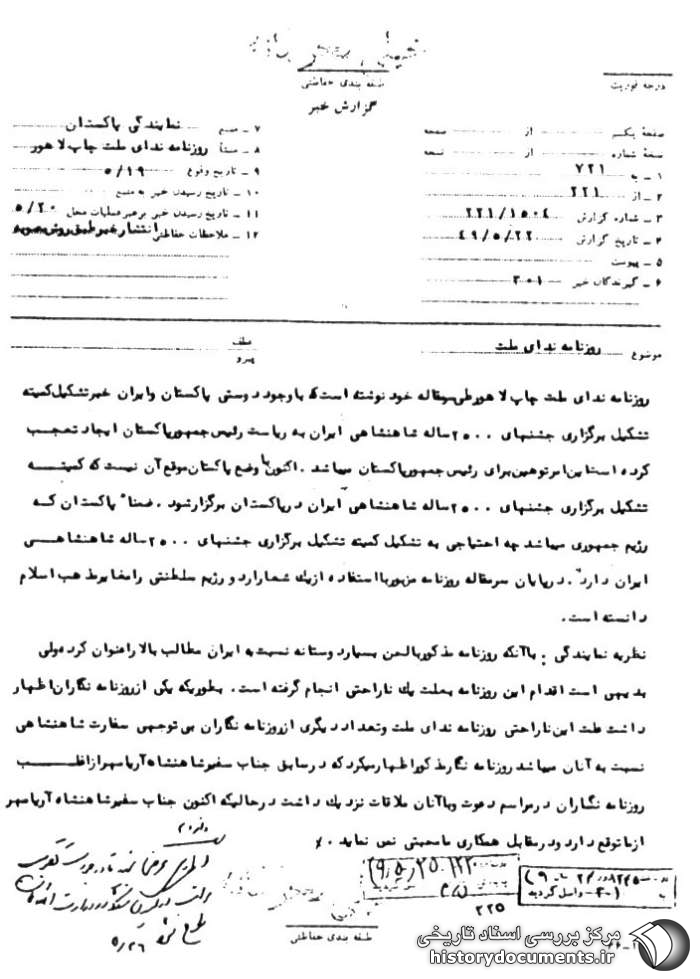 طبقه بندی حفاظتی
گزارش خبر
درجه فوریت
صفحه یکسر از صفحه
نسخهٔ شماره از نسخه
۱ ـ به ۷۲۱
۲ ـ از ۲۲۱
۳ ـ شماره گزارش ۲۲۱/۱۵۰۴
۴ ـ تاریخ گزارش ۴۹/۵/۲۲
۵ ـ پیوست
۶ ـ گیرندگان خبر ۳۰۱
۷ ـ منبع نمایندگی پاکستان
۸ ـ منشأ روزنامه ندای ملت چاپ لاهور
۹ ـ تاریخ وقوع ۵/۱۹
۱۰ ـ تاریخ رسیدن خبر به منبع
۱۱ ـ تاریخ رسیدن خبر برهبر عملیات محل ۵/۲۰
۱۲ ـ ملاحظات حفاظتی انتشار خبر طبق روش مصوبه
موضوع روزنامه ندای ملت
عطف
پیرو
روزنامه ندای ملت چاپ لاهور طی سرمقاله خود نوشته است که باوجود دوستی پاکستان وایران خبر تشکیل کمیته
تشکیل برگزاری جشنهای ۲۵۰۰ ساله شاهنشاهی ایران به ریاست رئیس جمهور پاکستان ایجاد تعجب
کرده است این امر توهین برای رئیس جمهور پاکستان میباشد . اکنون با وضع پاکستان موقع آن نیست که کمیته
تشکیل برگزاری جشنهای ۲۵۰۰ ساله شاهنشاهی ایران در پاکستان برگزار شود . ضمنا" پاکستان که
رژیم جمهوری میباشد چه احتیاجی به تشکیل کمیته تشکیل برگزاری جشنهای ۲۵۰۰ ساله شاهنشاهی
ایران دارد . در پایان سرمقاله روزنامه مزبور با استفاده از یک شعار ارد و رژیم سلطنتی را مغایر مذهب اسلام
دانسته است .
نظریه نمایندگی : باآنکه روزنامه مذکور بالحن بسیار دوستانه نسبت به ایران مطالب بالا را عنوان کرده ولی
بدیهی است اقدام این روزنامه بعلت یک ناراحتی انجام گرفته است . بطوریکه یکی از روزنامه نگاران اظهار
داشت علت این ناراحتی روزنامه ندای ملت وتعداد دیگری از روزنامه نگاران بی توجهی سفارت شاهنشاهی
نسبت به آنان میباشد روزنامه نگار مذکور اظهار میکرد که در سابق جناب سفیر شاهنشاه آریامهر از اغلب
روزنامه نگاران در مراسم دعوت وباآنان ملاقات نزدیک داشت در حالیکه اکنون جناب سفیر شاهنشاه آریامهر
از ما توقع دارد و در مقابل همکاری ما محبتی نمی نماید .
۲۲۵
۵/۲۶
طبقه بندی حفاظتی
مرکز بررسی اسناد تاریخی
historydocuments.ir